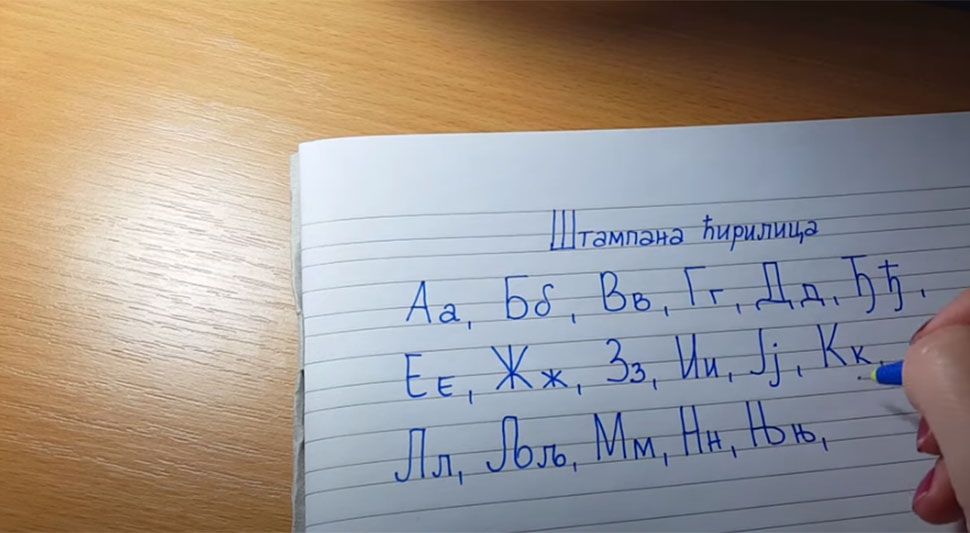 Штампана ћирилица
Аа, Бб, Вв, Гг, Дд, Ђђ,
Ее, Жж, Зз, Ии, Јј, Кк,
Лл, Љљ, Мм, Нн, Њњ,